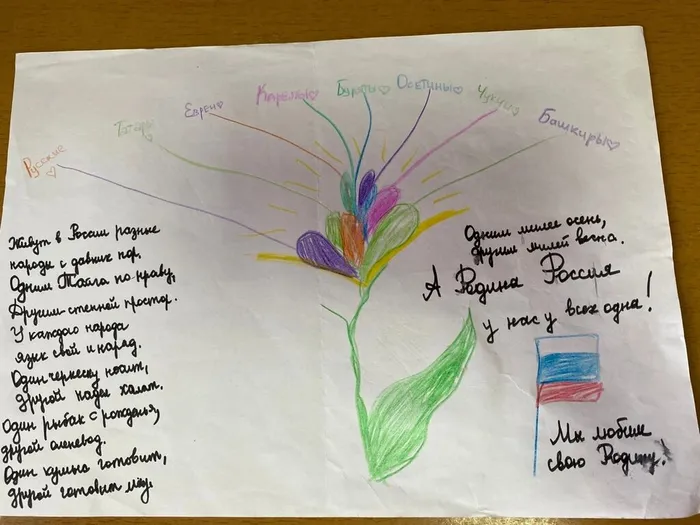 Русские
Татары
Евреи
Карелы
Буряты
Осетины
Чукчи
Башкиры
Живут в России разные
народы с давних пор.
Одним Тайга по нраву,
Другим степной простор.
У каждого народа
язык свой и наряд.
Один черкеску носит,
другой надел халат.
Один рыбак с рожденья,
другой оленевод.
Один кумыс готовит,
другой готовит мёд.
Одним милее осень,
другим милей весна.
А Родина Россия
у нас у всех одна!
Мы любим
свою Родину!